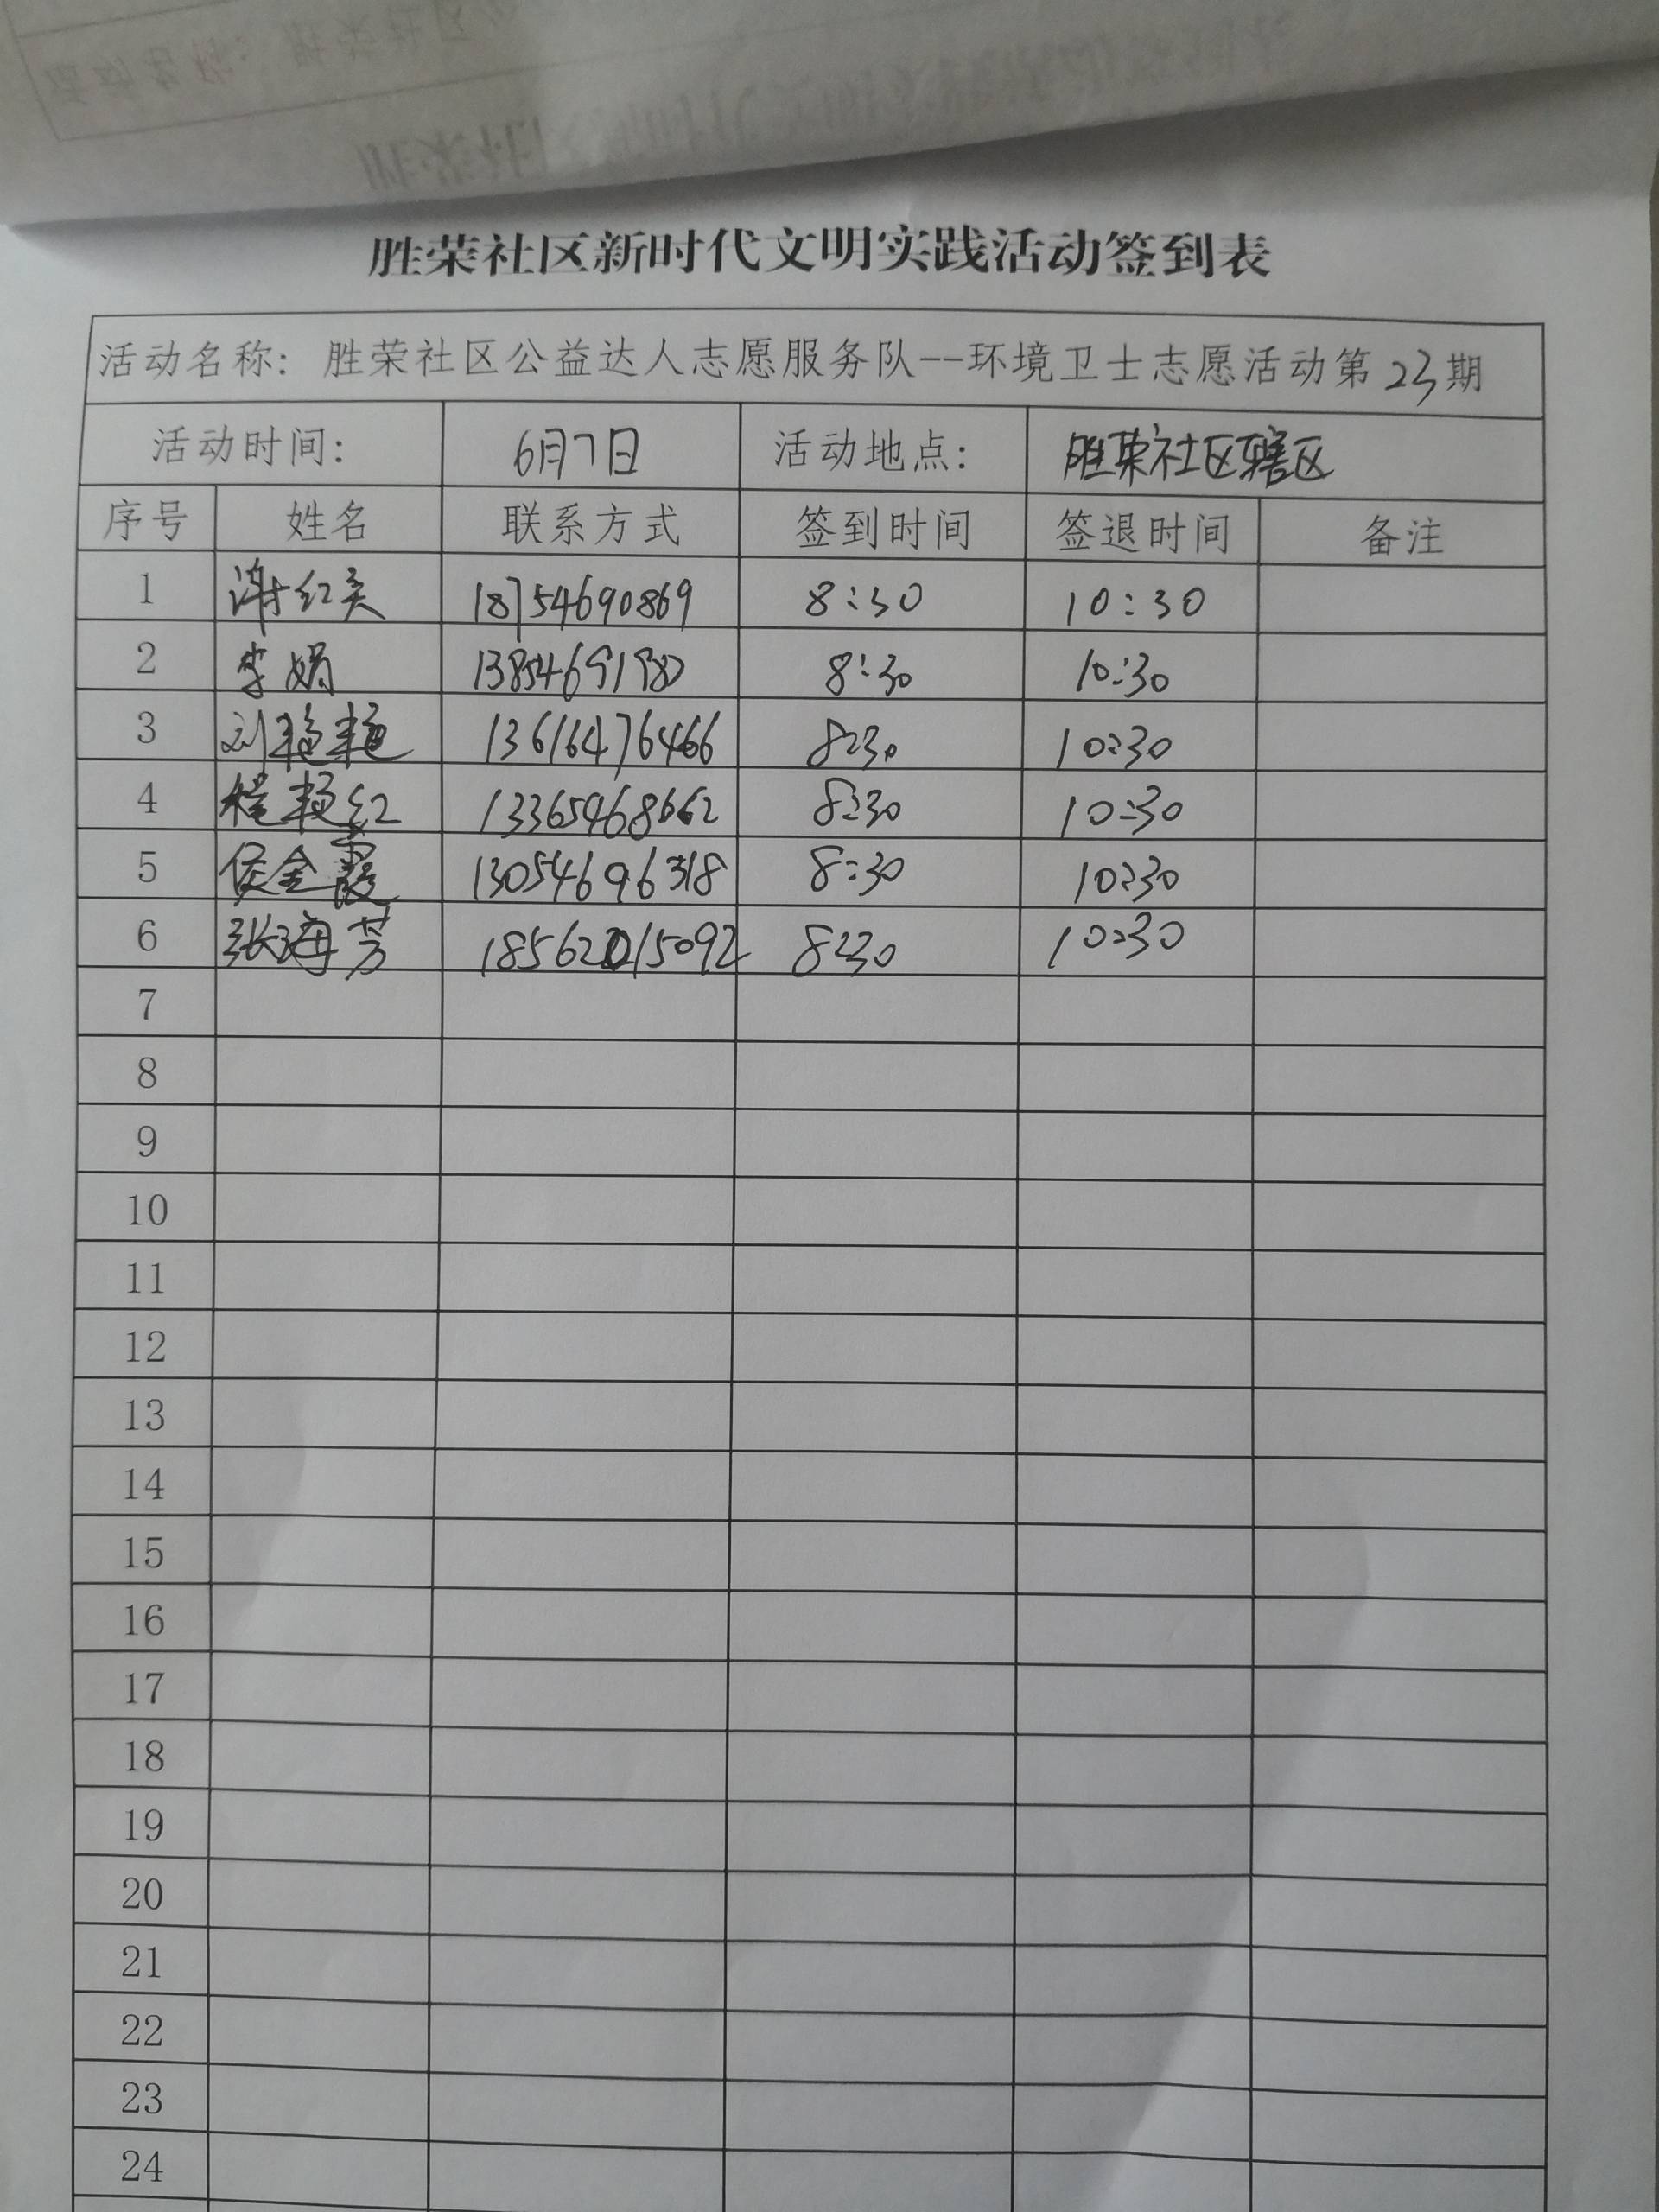 胜荣社区新时代文明实践活动签到表
活动名称：胜荣社区公益达人志愿服务队--环境卫士志愿活动第23期
活动时间： 6月7日 活动地点： 胜荣社区辖区
序号 姓名 联系方式 签到时间 签退时间 备注
1 谢红英 18754690869 8:30 10:30
2 李娟 8:30 10:30
3 刘艳艳 13616476466 8:30 10:30
4 程艳红 13365468662 8:30 10:30
5 侯金霞 13054696318 8:30 10:30
6 张海芳 18562015092 8:30 10:30
7
8
9
10
11
12
13
14
15
16
17
18
19
20
21
22
23
24